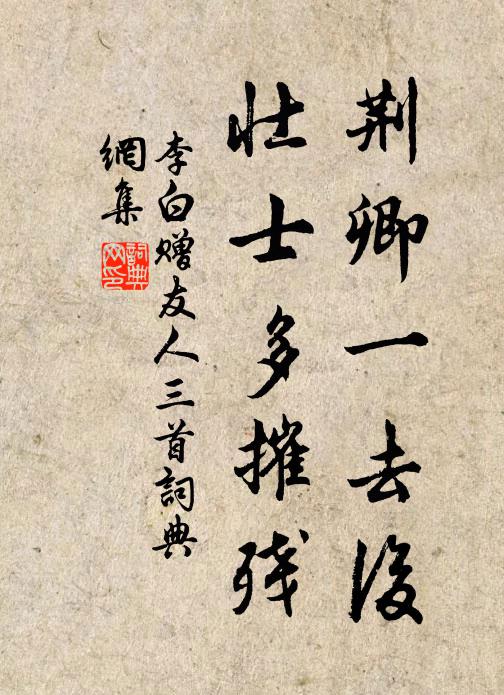 荆卿一去後
壮士多摧残
李白赠友人三首詞典
網集
詞典
网印